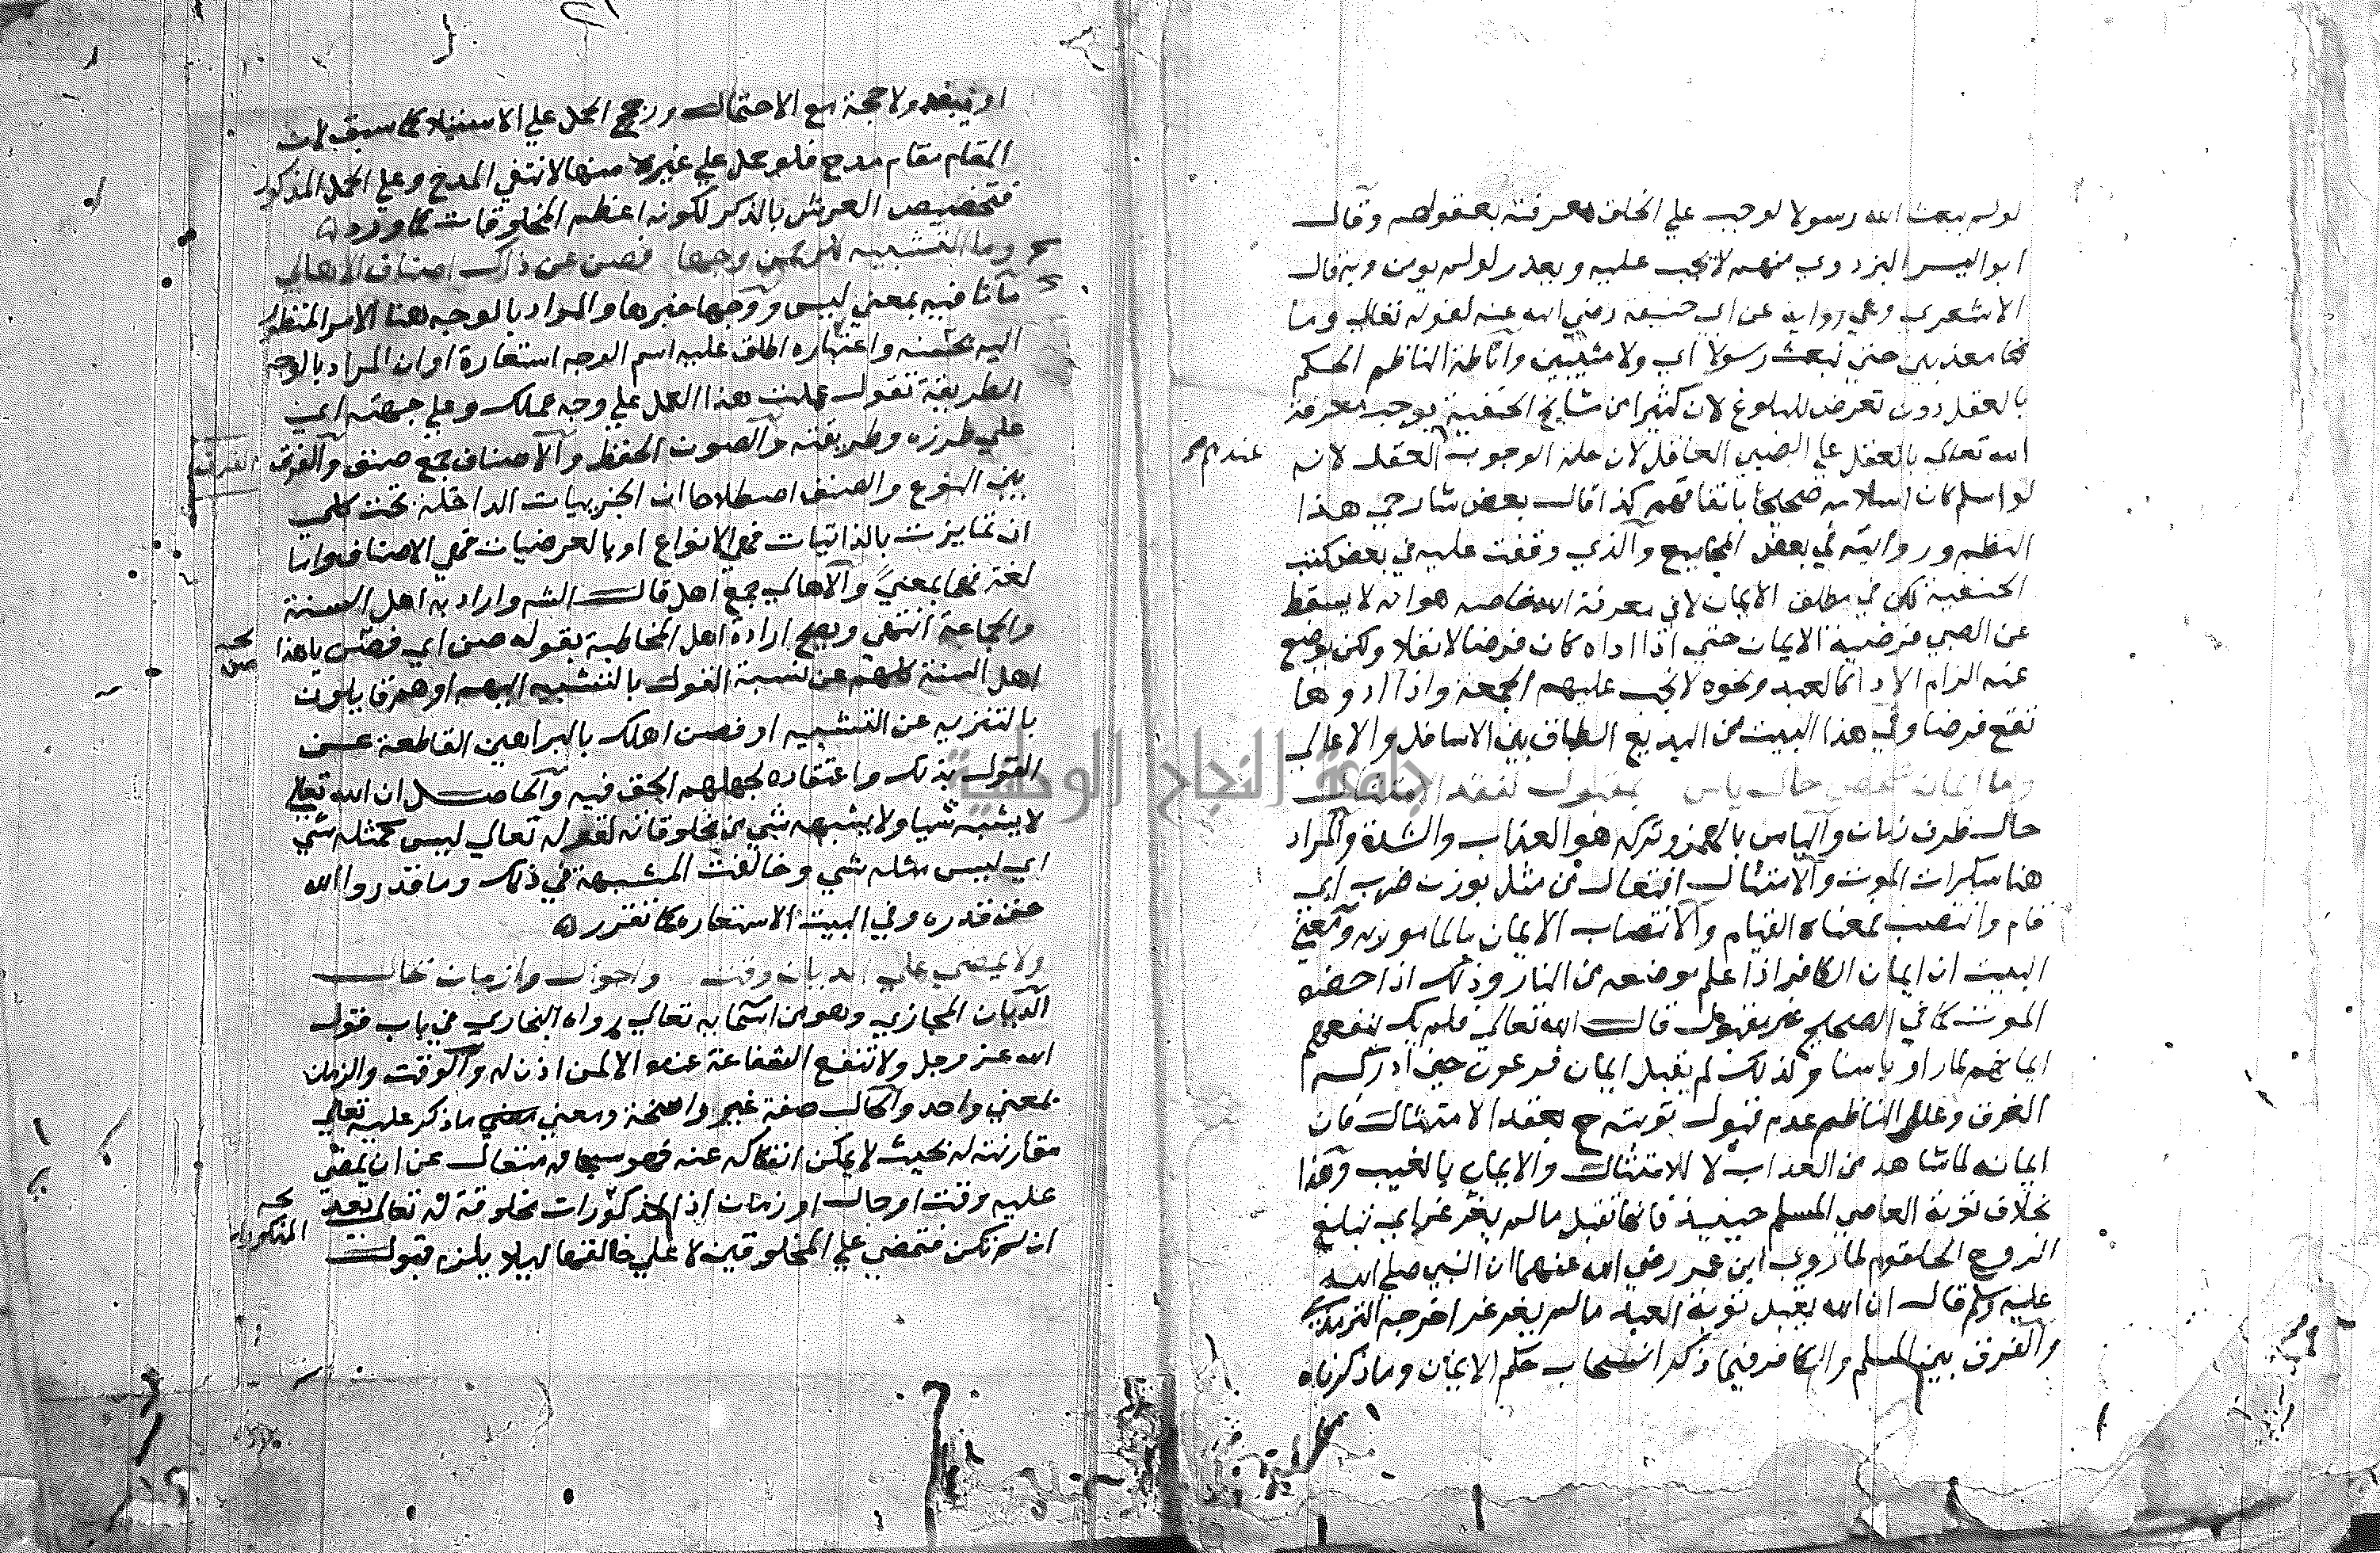 لو لم يبعث الله رسولا لوجب علي الخلق معرفته بعقولهم وقال
ابو اليسر البزدوي منهم لا يجب عليه ويعذر لو لم يومن وبه قال
الاشعري وهي رواية عن ابي حنيفة رضي الله عنه لقوله تعالي وما
كنا معذبين حتي نبعث رسولا اي ولا مثيبين واناطة الناظم الحكم
بالعقل دون تعرض للبلوغ لان كثيرا من مشايخ الحنفية يوجب معرفة
الله تعالي بالعقل علي الصبي العاقل لان علة الوجوب العقل لانه
عندهم
لو اسلم كان اسلامه صحيحا باتفاقهم كذا قال بعض شارحي هذا
النظم ورواية في بعض المجاميع والذي وقفت عليه في بعض كتب
الحنفية لكن في مطلق الايمان لا في معرفة الله خاصة هو انه لا يسقط
عن الصبي فرضية الايمان حتي اذا اداه كان فرضا لا نفلا ولكن يوضع
عنه الزام الاداء كالعبد ونحوه لا تجب عليهم الجمعة واذا ادوها
تقع فرضا وفي هذا البيت من البديع الطباق بين الاسافل والاعالي
وما ايمان شخص حال ياس بمقبول لفقد الامتثال
حال ظرف زمان والياس بالهمز وتركه هو العذاب والشدة والمراد
هنا سكرات الموت والامتثال افتعال من مثل بوزن ضرب اي
قام وانتصب بمعناه القيام والانتصاب الايمان بالمامور به ومعني
البيت ان ايمان الكافر اذا علم موضعه من النار وذلك اذا حضره
الموت كما في الصحاح غير مقبول قال الله تعالي فلم يك ينفعهم
ايمانهم لما راو باسنا ولذلك لم يقبل ايمان فرعون حين ادركه
الغرق وعلل الناظم عدم قبول توبته ح بفقد الامتثال فان
ايمانه لما شاهد من العذاب لا للامتثال والايمان بالغيب وهذا
بخلاف توبة العاصي المسلم حينيذ فانها تقبل ما لم يغرغر اي تبلغ
الروح الحلقوم لما روي ابن عمر رضي الله عنهما ان النبي صلي الله
عليه وسلم قال ان الله يقبل توبة العبد ما لم يغرغر اخرجه الترمذي
والفرق بين المسلم والكافر فيما ذكر استصحاب حكم الايمان وما ذكرناه
ولا حجة مع الاحتمال ورجح الحمل علي الاستيلا كما سبق لان
المقام مقام مدح فلو حمل علي غيره منها لانتفي المدح وعلي الحمل المذكور
فتخصيص العرش بالذكر لكونه اعظم المخلوقات كما ورد
وما التشبيه للرحمن وجها فصن عن ذاك اصناف الاهالي
ما نافية بمعني ليس ووجها خبرها والمراد بالوجه هنا الامر المنظور
اليه واعتباره اطلق عليه اسم الوجه استعارة او ان المراد بالوجه
الطريقة تقول عملت هذا العمل علي وجه عملك وعلي جهته اي
علي طرزه وطريقته والصون الحفظ والاصناف جمع صنف والفرق
الفرق
بين النوع والصنف اصطلاحا ان الجزييات الداخلة تحت كلي
ان تمايزت بالذاتيات فهي الانواع او بالعرضيات فهي الاصناف واما
لغة فهما بمعني والاهالي جمع اهل قال الشم واراد به اهل السنة
والجماعة انتهي ويصح ارادة اهل المخاطبة بقوله صن اي فصن يا هذا
اهل السنة كلهم عن نسبة القول بالتشبيه اليهم او هم قايلون
بالتنزيه عن التشبيه او فصن اهلك بالبراهين القاطعة عن
القول بذلك واعتقاده لجهلهم الحق فيه والحاصل ان الله تعالي
لا يشبه شيا ولا يشبهه شي من مخلوقاته لقوله تعالي ليس كمثله شي
اي ليس مثله شي وخالفت المشبهة في ذلك وما قدروا الله
حق قدره وفي البيت الاستعاره كما تقرر
ولا يمضي علي الديان وقت واحوال وازمان بحال
الديان المجازي وهو من اسمايه تعالي رواه البخاري في باب قول
الله عز وجل ولا تنفع الشفاعة عنده الا لمن اذن له والوقت والزمان
بمعني واحد والحال صفة غير راسخة ومعني مضي ما ذكر عليه تعالي
مقارنته له بحيث لا يمكن انفكاكه عنه فهو سبحانه متعال عن ان يمضي
عليه وقت او حال او زمان اذ المذكورات مخلوقة له تعالي بعد
المذكورات
ان لم تكن فتمضي علي المخلوقين لا علي خالقها ليلا يلزم قبول